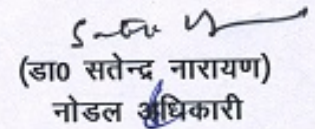 (डा0 सतेन्द्र नारायण)
नोडल अधिकारी